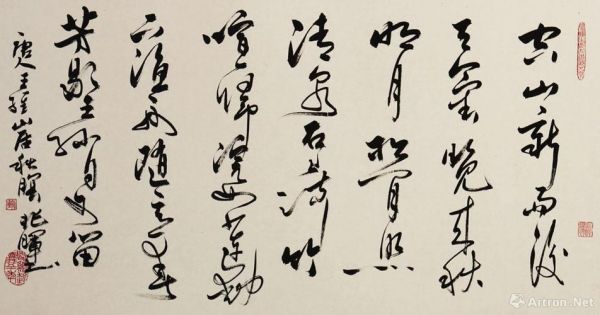 空山新雨後
天氣晚来秋
明月松間照
清泉石上流竹
喧歸浣女蓮動
下漁舟隨意春
芳歇王孫自可留
唐人王維山居秋暝
Artron.Net